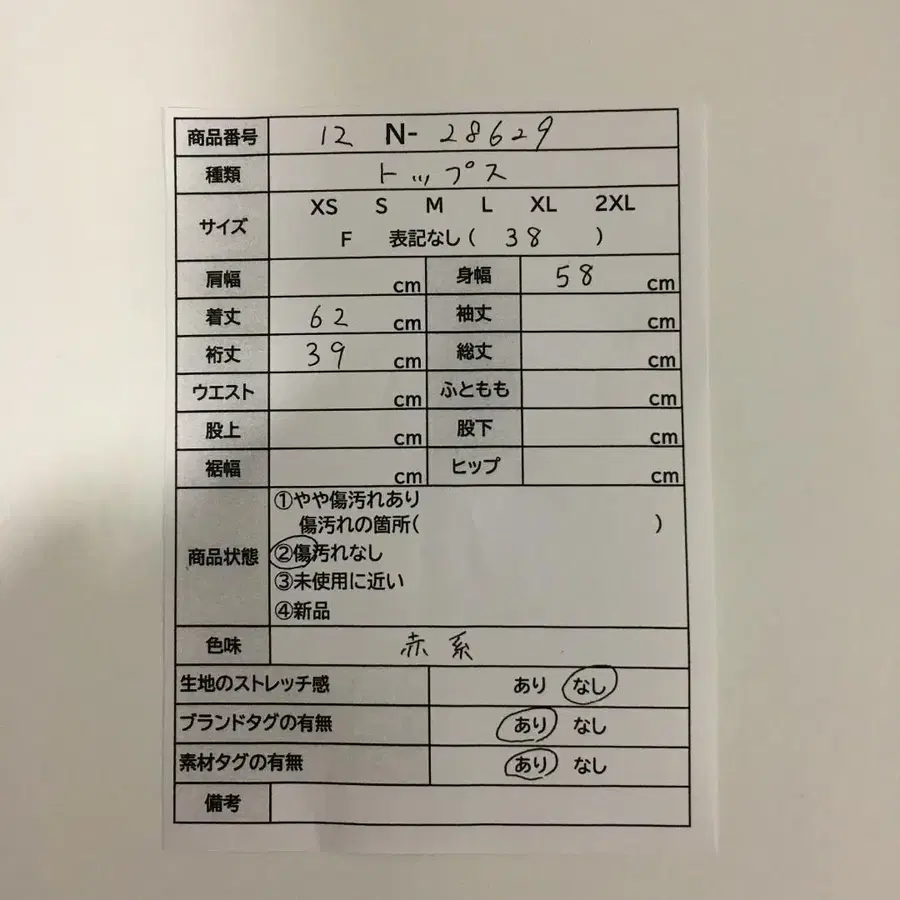 商品番号 12 N- 28629
種類 トップス
サイズ XS S M L XL 2XL
F 表記なし ( 38 )
肩幅 cm 身幅 58 cm
着丈 62 cm 袖丈 cm
裄丈 39 cm 総丈 cm
ウエスト cm ふともも cm
股上 cm 股下 cm
裾幅 cm ヒップ cm
商品状態 ①やや傷汚れあり
傷汚れの箇所( )
②傷汚れなし
③未使用に近い
④新品
色味 赤系
生地のストレッチ感 あり なし
ブランドタグの有無 あり なし
素材タグの有無 あり なし
備考